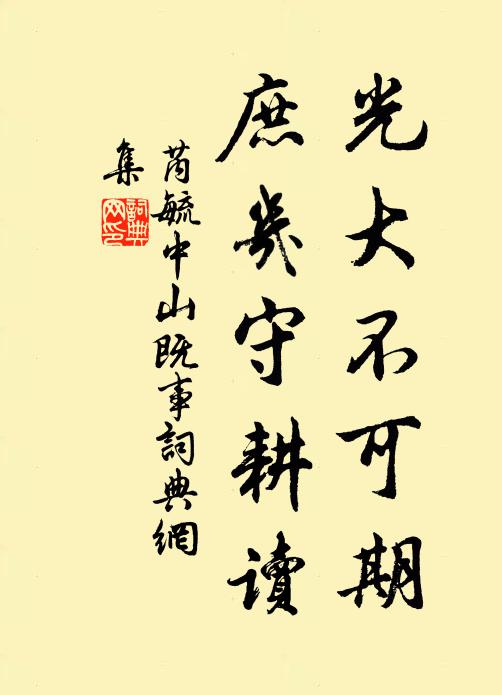 光大不可期
庶幾守耕讀
芮毓中山既事詞典網
集
詞典網印